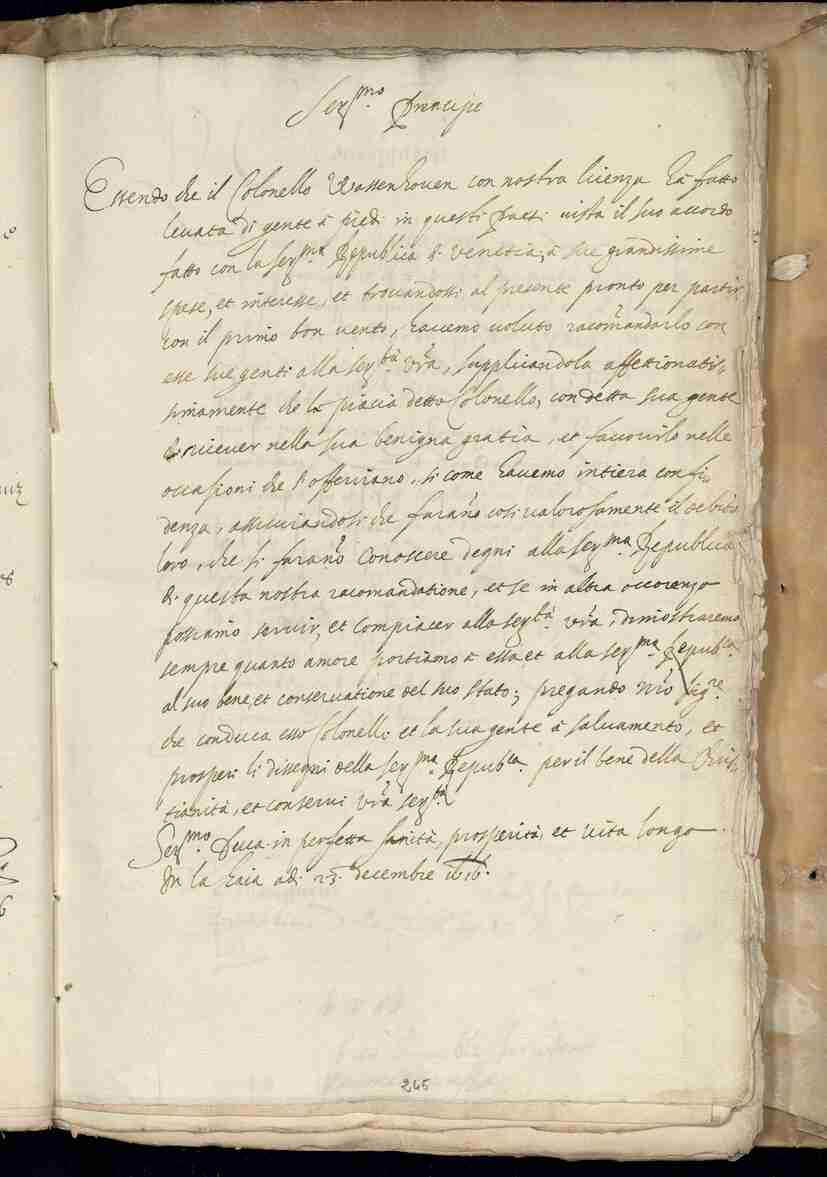 Ser.mo Principe
Essendo che il Colonello Wassenhoven con nostra licenza hà fatto
levata di gente à piedi in questi Paesi vista il suo accordo
fatto con la ser.ma Republica di Venetia, à sue grandissime
spese, et interesse, et trovandosi al presente pronto per partir
con il primo bon vento, havemo voluto racomandarlo con
esse sue genti alla ser.tà vra, supplicandola affetionatis-
simamente che la piacia detto Colonello, con detta sua gente
ricever nella sua benigna gratia, et favorirlo nelle
occasioni che s'offerirano, si come havemo intiera confi-
denza, assicurandosi che farano cosi valorosamente il debito
loro, che si farano conoscere degni alla ser.ma Republica
di questa nostra racomandatione, et se in altra occorenza
possiamo servir, et compiacer alla ser.tà vra, dimostraremo
sempre quanto amore portiamo à essa et alla ser.ma Repub.ca
al suo bene, et conservatione del suo stato; pregando nro sig.re
che conduca esso Colonello et la sua gente à salvamento, et
prosperi li dissegni della ser.ma Repub.ca per il bene della Chris-
tianità, et conservi vra ser.tà
Ser.mo Duca in perfetta sanità, prosperità, et vita longa.
In la Haia adi 23. decembre 1616.
245